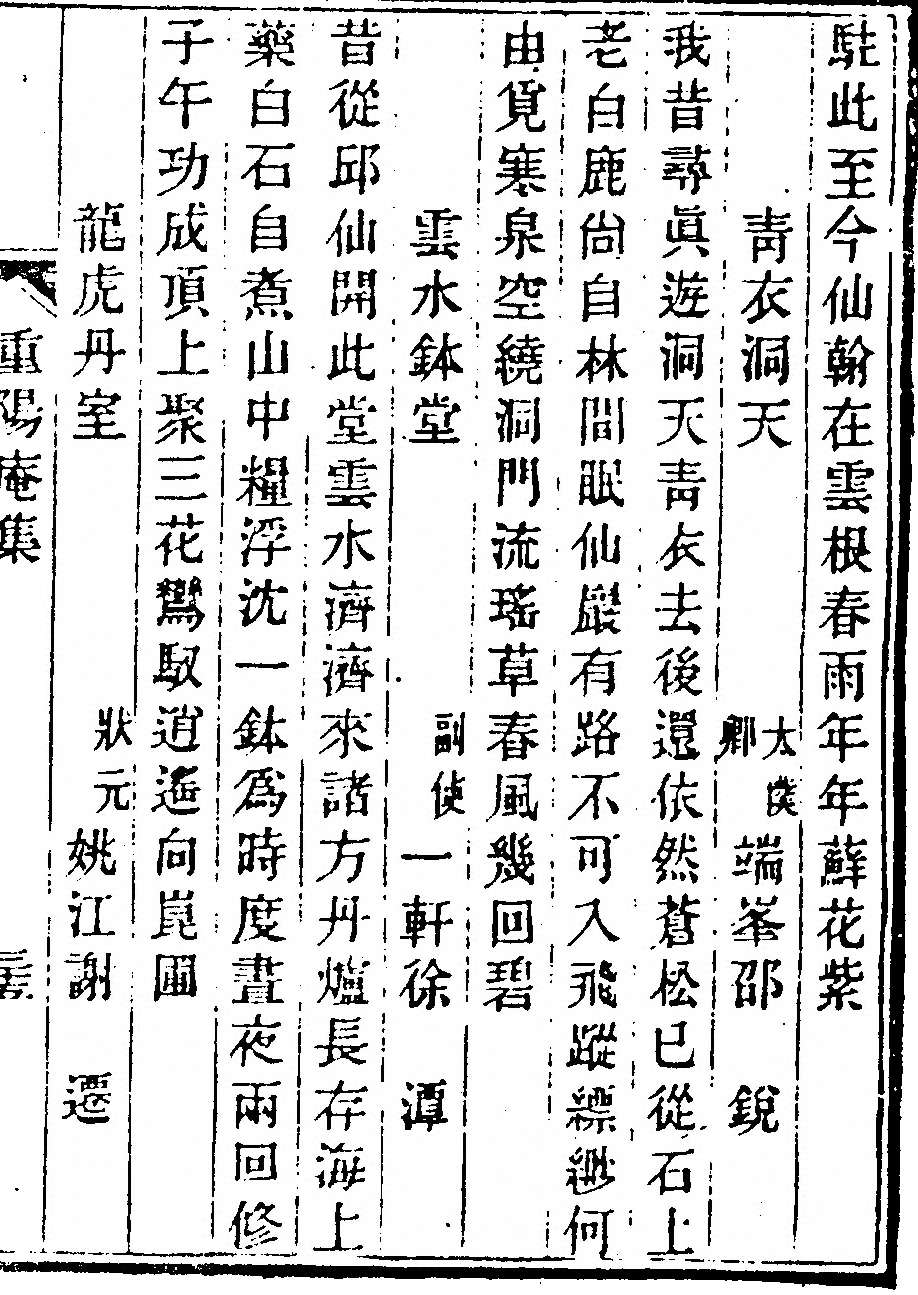 駐此至今仙翰在雲根春雨年年蘚花紫
靑衣洞天　太僕卿端峯邵　銳
我昔尋眞遊洞天靑衣去後還依然蒼松已從石上
老白鹿尙自林間眠仙巖有路不可入飛蹤縹緲何
由覓寒泉空繞洞門流瑤草春風幾回碧
雲水鉢堂　副使一軒徐　潭
昔從邱仙開此堂雲水濟濟來諸方丹爐長存海上
藥白石自煮山中糧浮沈一鉢爲時度晝夜兩回修
子午功成頂上聚三花鸞馭逍遙向崑圃
龍虎丹室　狀元姚江謝　遷
重陽庵集